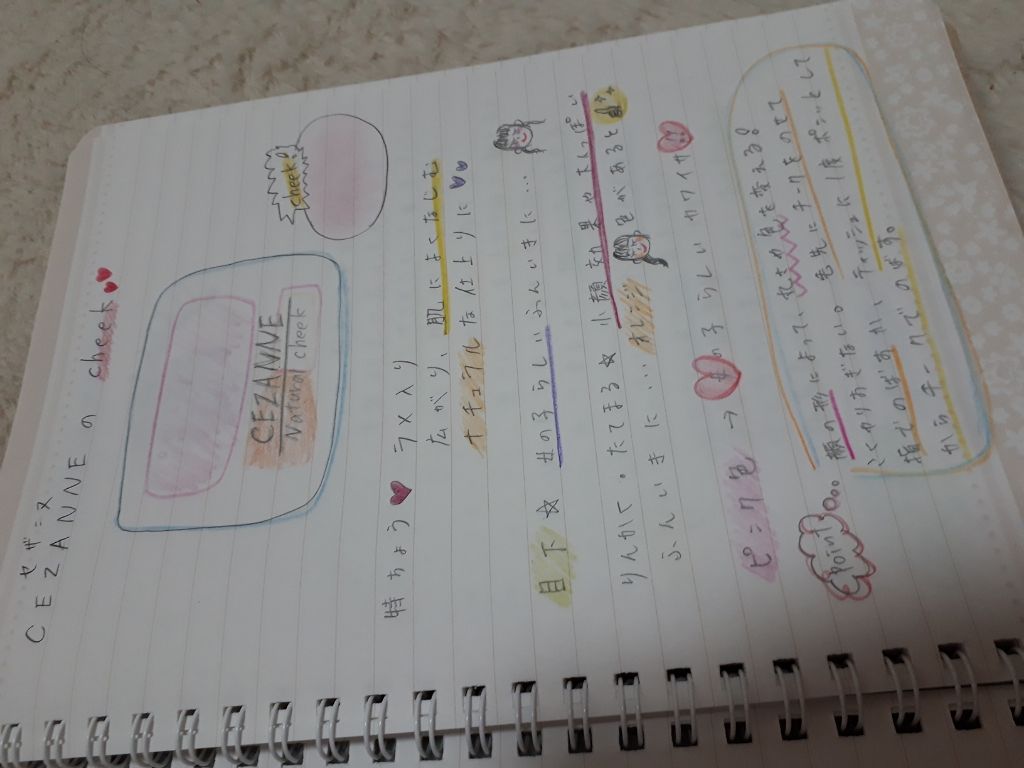 セザンヌ
CEZANNE の cheek
CEZANNE
Natural cheek
cheek
特ちょう ♥ ラメ入り
広がり、肌によくなじむ
ナチュラルな仕上りに
目下 ☆ 女の子らしいふんいきに…
たてまる☆ 小顔効果や大人っぽい
ふんいきに… オレンジ 色があると
ピンク色 → 女の子らしい カワイサ
Point
顔の形によって、ぬる を変える!
毛先にチークをのせて
指で ティッシュに1度ポンッとして
からチークでのばす。